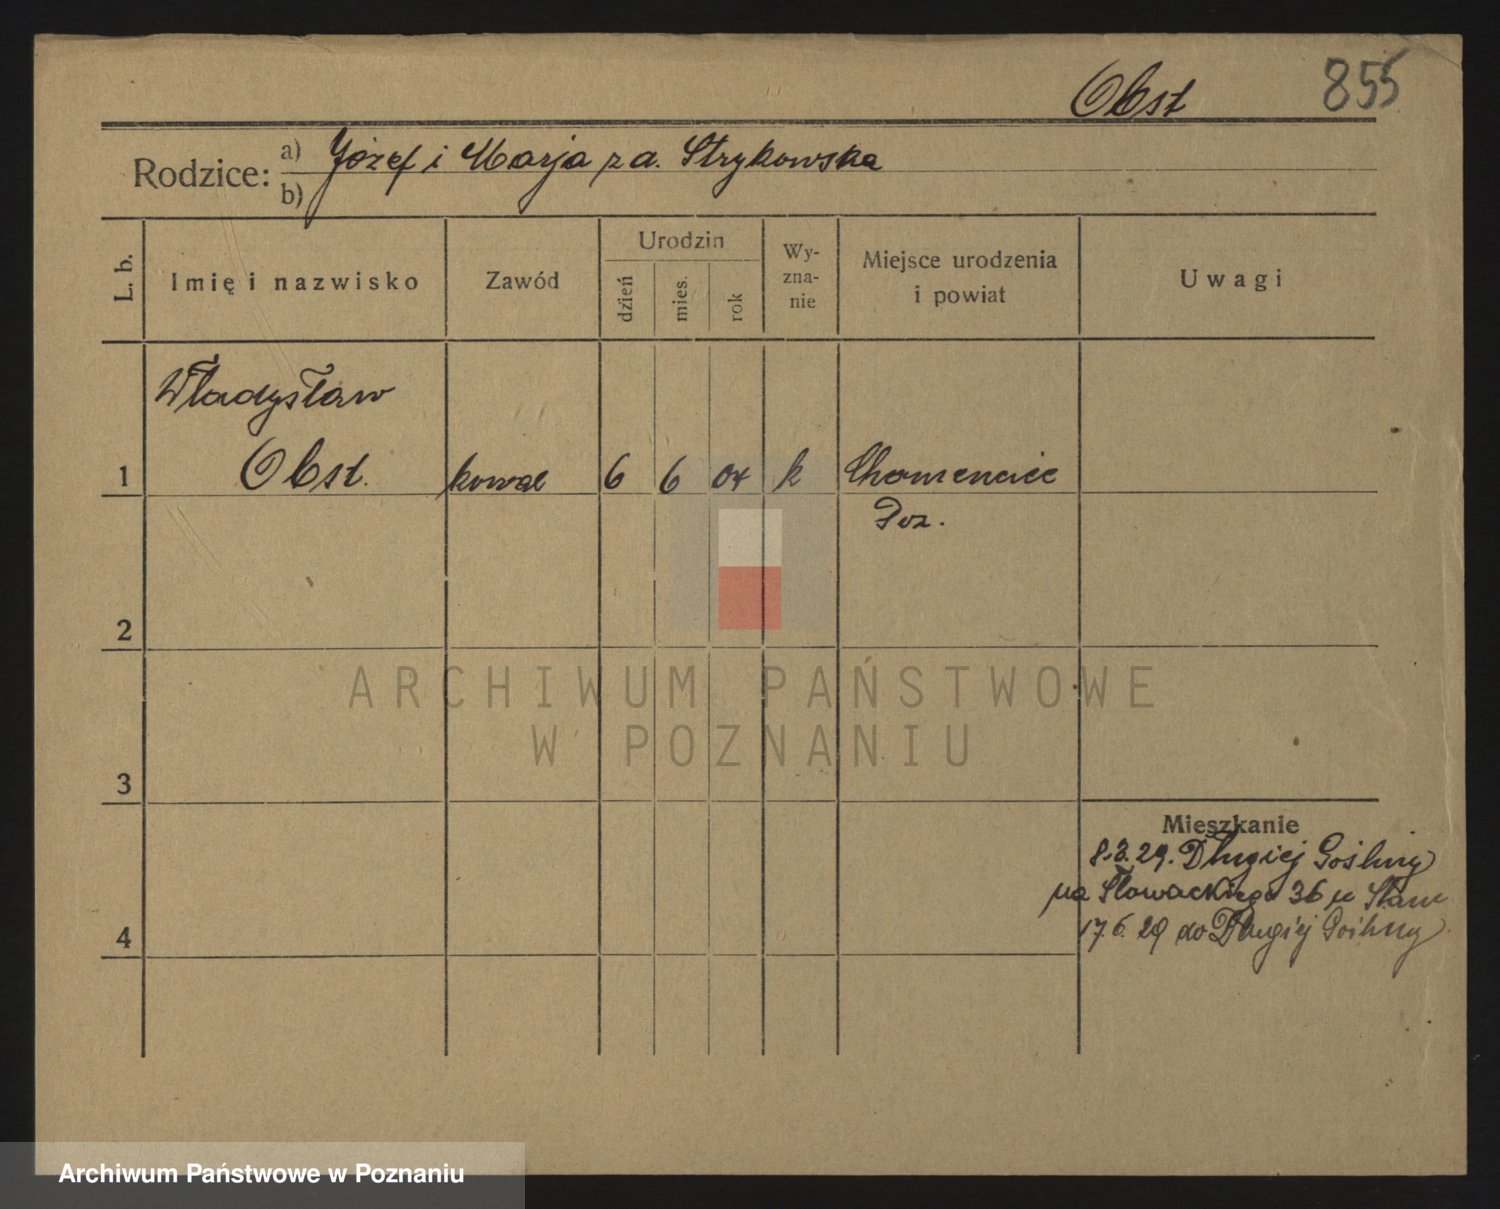 Obst 855
Rodzice: a) Józef i Marja z d. Strykowska
b)
L. b. Imię i nazwisko Zawód Urodzin dzień mies. rok Wy-zna-nie Miejsce urodzenia i powiat Uwagi
Władysław
1 Obst. kowal 6 6 04 k Chomencice
Poz.
2
ARCHIWUM PAŃSTWOWE
W POZNANIU
3
Mieszkanie
8.3.29. Długiej Gośliny
na Słowackiego 36 u
4 17.6.29 do Długiej Gośliny
Archiwum Państwowe w Poznaniu